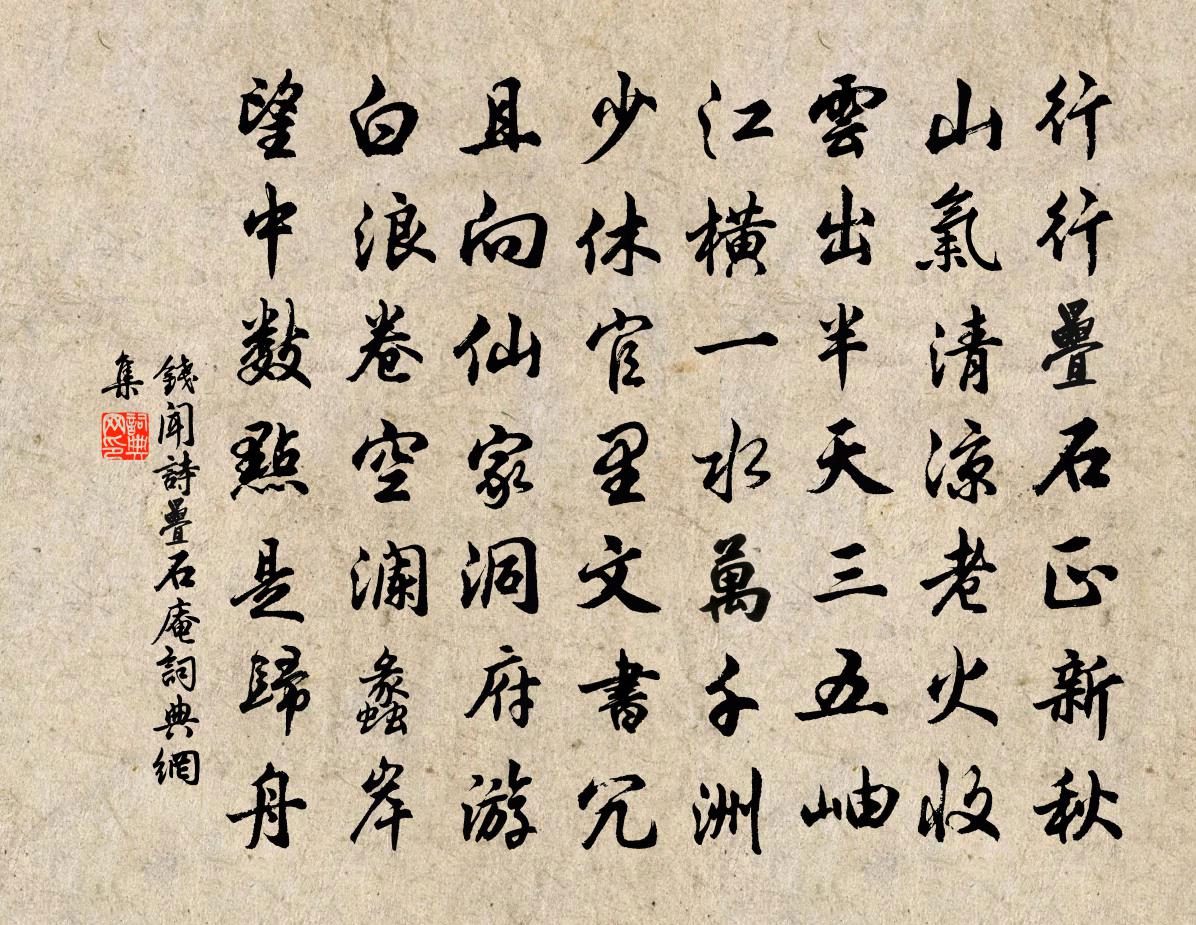 行行疊石正新秋
山氣清涼老火收
雲出半天三五岫
江橫一水萬千洲
少休官里文書冗
且向仙家洞府游
白浪卷空瀾蠡岸
望中數點是歸舟
錢聞詩疊石庵詞典網
集
詞典
网印